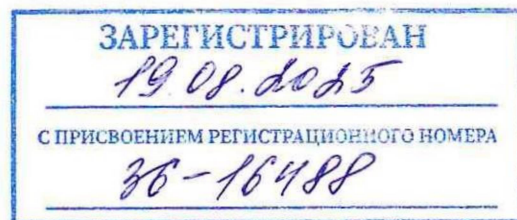 ЗАРЕГИСТРИРОВАН
19.08.2025
С ПРИСВОЕНИЕМ РЕГИСТРАЦИОННОГО НОМЕРА
36-16488